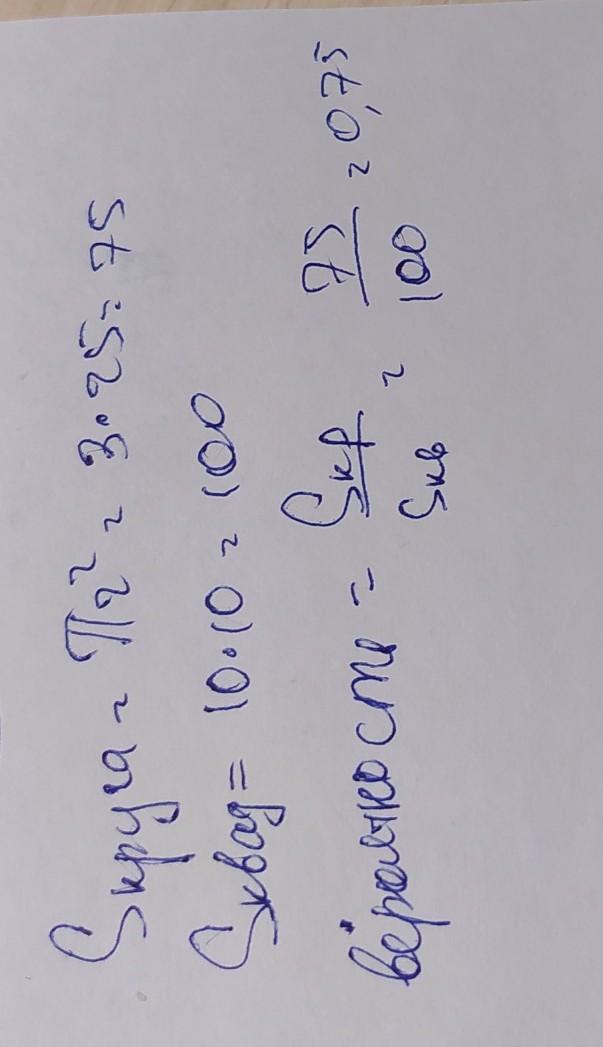 Sкруга = πr² = 3·25 = 75
Sквад = 10·10 = 100
вероятность = Sкр/Sкв = 75/100 = 0,75